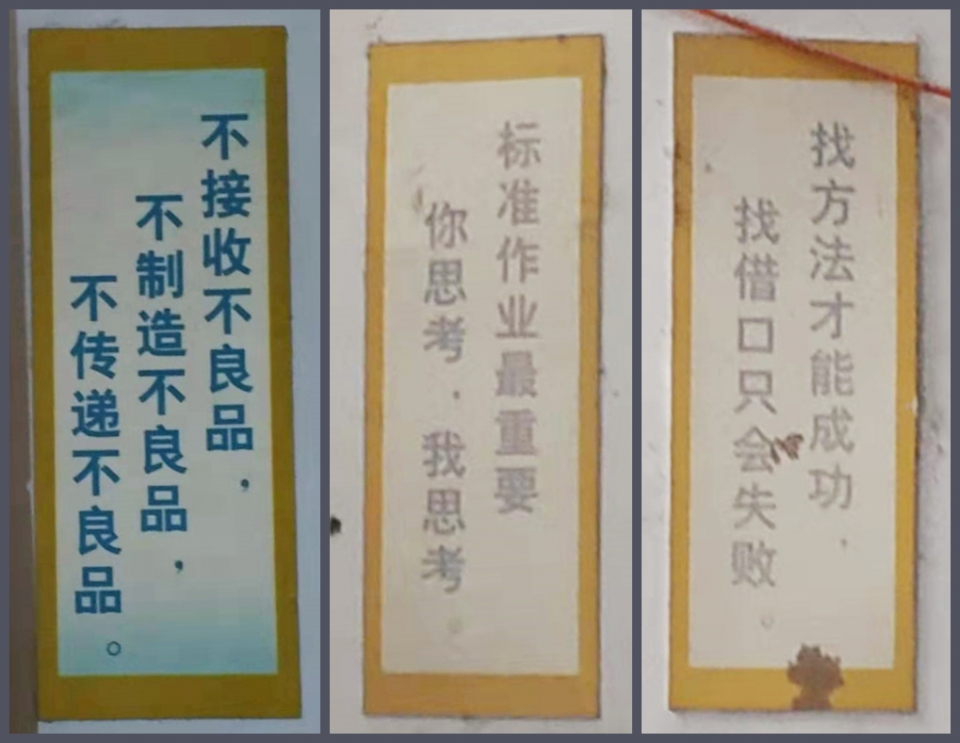 不接收不良品，
不制造不良品，
不传递不良品。
标准作业最重要
你思考，我思考。
找方法才能成功，
找借口只会失败。